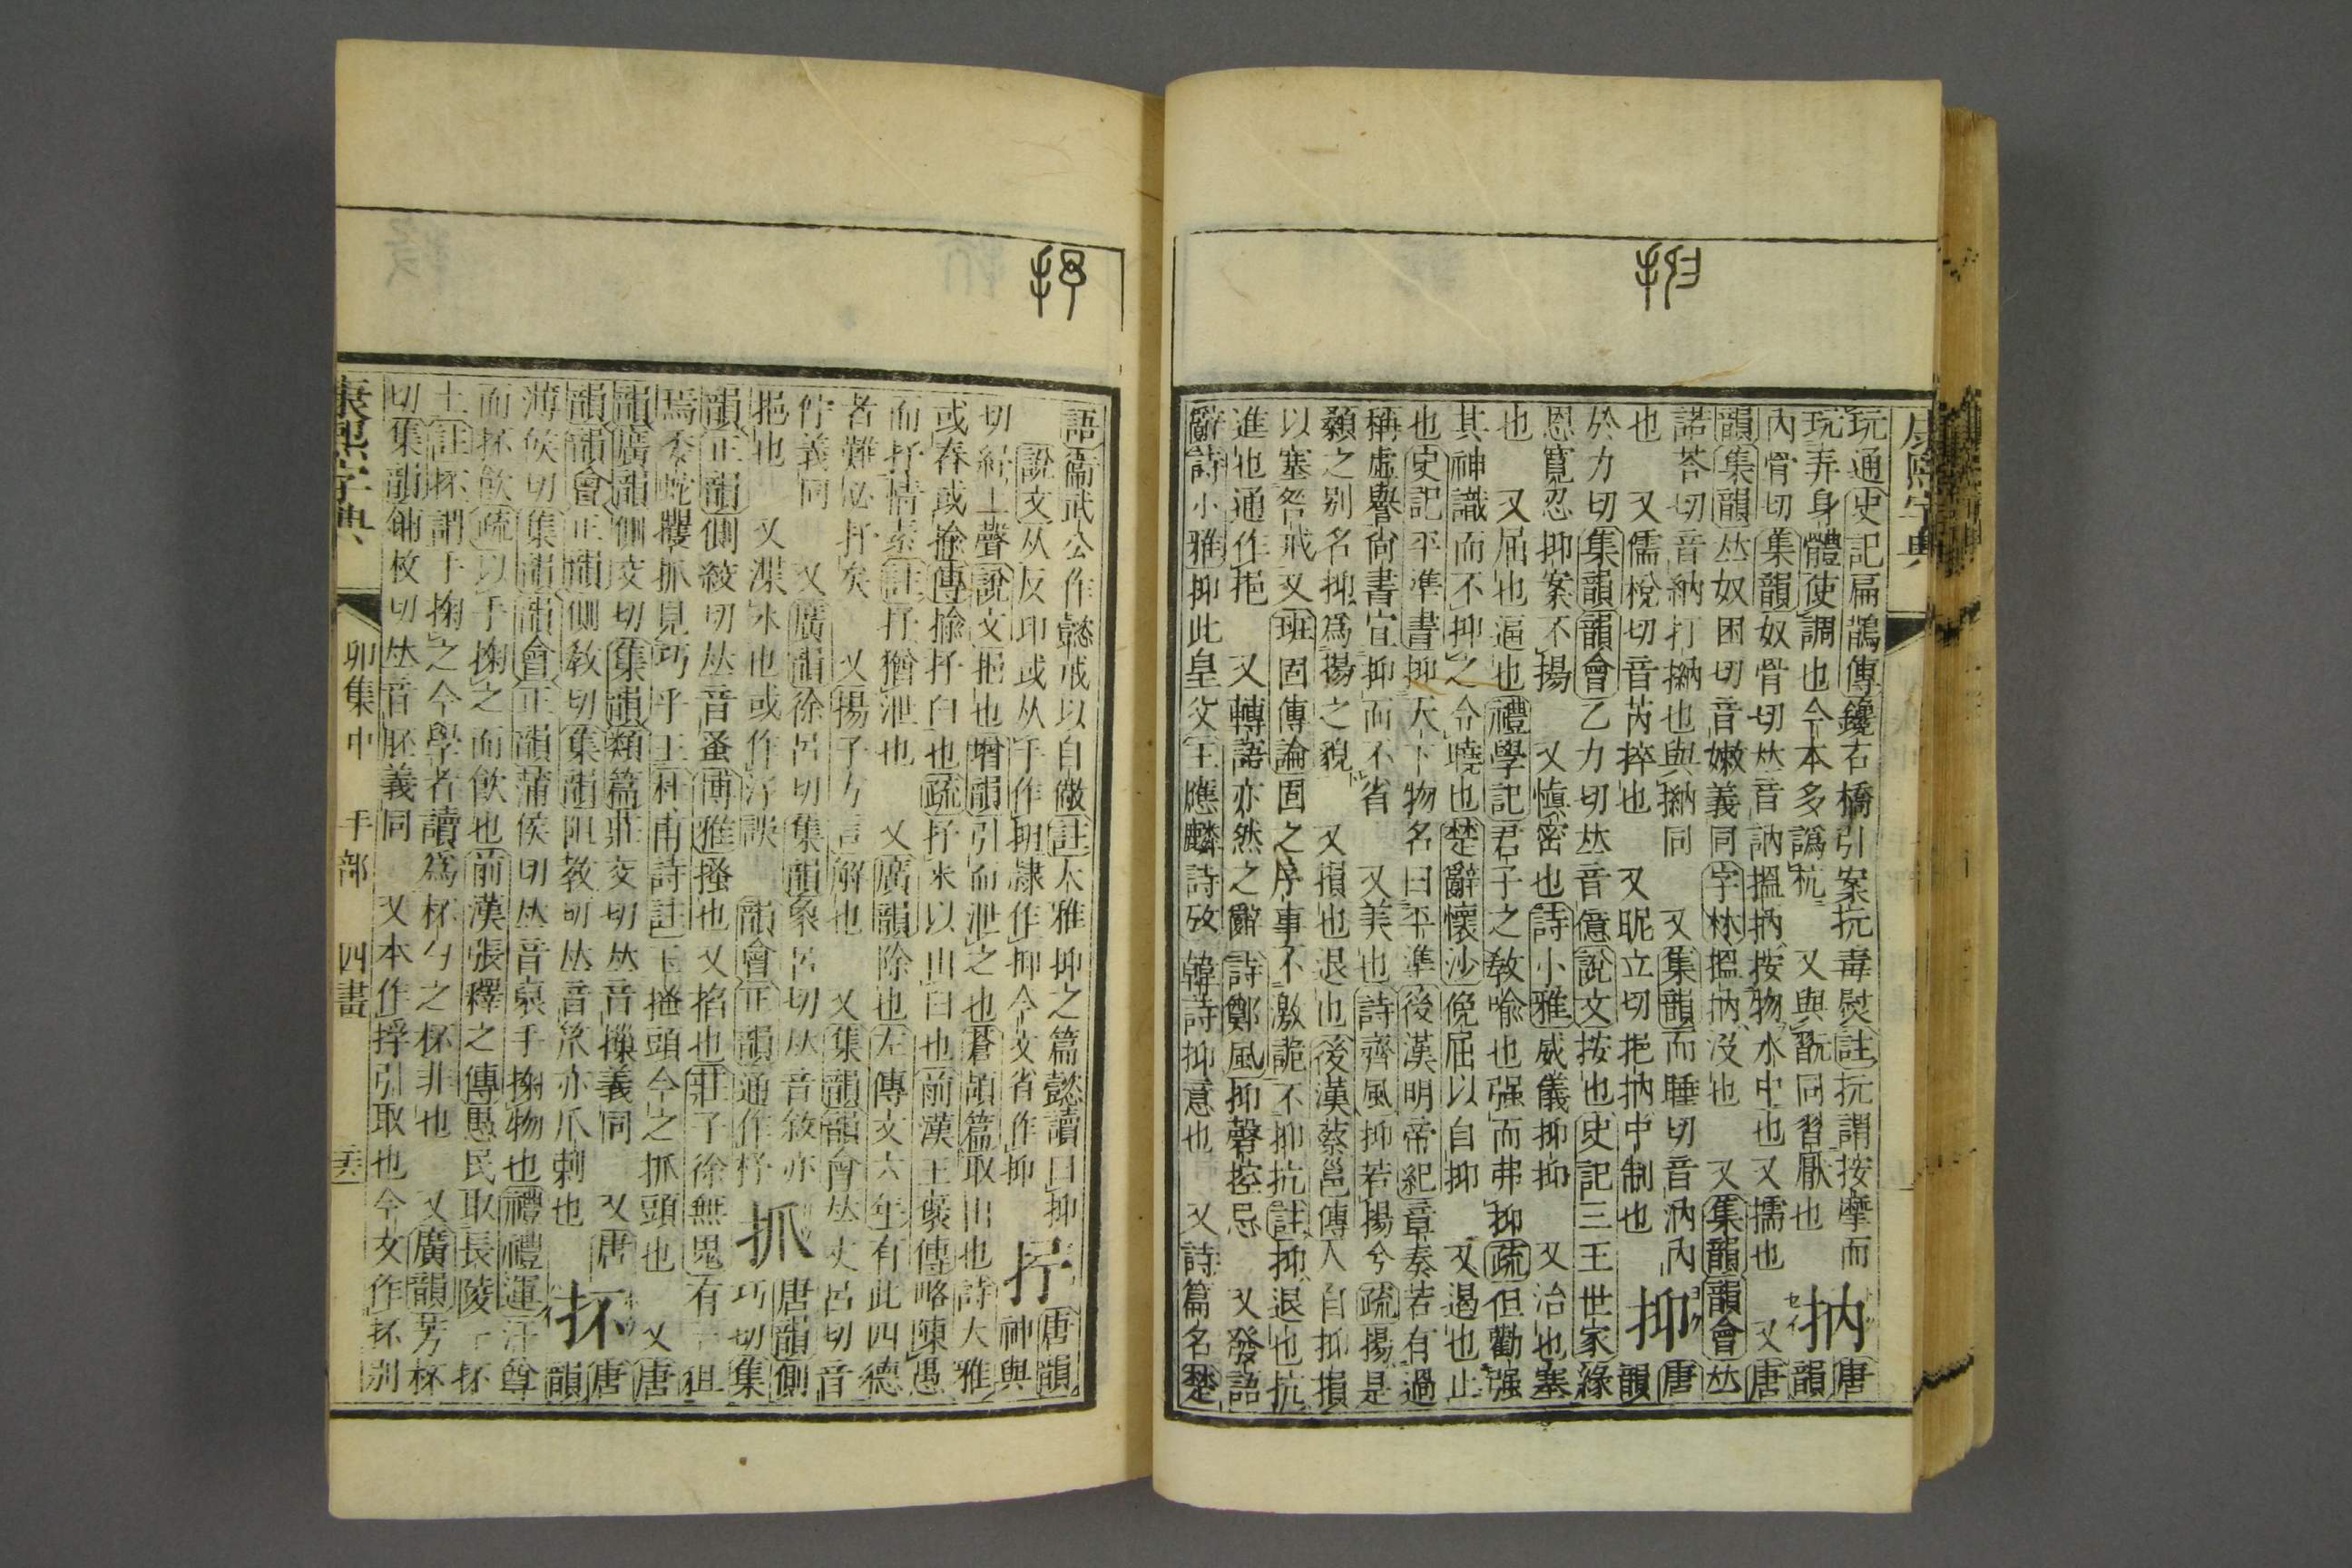 康熙字典
玩通史記扁鵲傳鑱石橋引案抗毒熨註抏謂按摩而 抐 唐
玩弄身體使調也今本多譌杭 又與翫同習厭也 韻
內骨切集韻奴骨切𠀤音訥搵抐按物水中也又擩也 又唐
韻集韻𠀤奴困切音嫩義同字林搵抐沒也 又集韻韻會𠀤
諾荅切音納打㨥也與㨥同 又集韻而睡切音汭內 抑 唐
也 又儒梲切音芮捽也 又昵立切挹抐中制也 韻
於力切集韻韻會乙力切𠀤音億說文按也史記三王世家緣
恩寬忍抑案不揚 又愼密也詩小雅威儀抑抑 又治也塞
也 又屈也逼也禮學記君子之敎喻也强而弗抑疏但勸强
其神識而不抑之令曉也楚辭懷沙俛屈以自抑 又遏也止
也史記平準書抑天下物名曰平準後漢明帝紀章奏若有過
稱虛譽尙書宜抑而不省 又美也詩齊風抑若揚兮疏揚是
顙之别名抑爲揚之貌 又損也退也後漢蔡邕傳人自抑損
以塞咎戒 又班固傳論固之序事不激詭不抑抗註抑退也抗
進也通作挹 又轉語亦然之辭詩鄭風抑磬控忌 又發語
辭詩小雅抑此皇父王應麟詩攷韓詩抑意也 又詩篇名楚
語衞武公作懿戒以自儆註大雅抑之篇懿讀曰抑 抒 唐韻
說文从反印或从手作 隸作抑今文省作抑 神與
切紓上聲說文挹也增韻引而泄之也蒼頡篇取出也詩大雅
或舂或揄傳揄抒臼也疏抒米以出臼也前漢王褒傳略陳愚
而抒情素註抒猶泄也 又廣韻除也左傳文六年有此四德
者難必抒矣 又揚子方言解也 又集韻韻會𠀤丈呂切音
佇義同 又廣韻徐呂切集韻象呂切𠀤音敘亦 抓 唐韻側
挹也 又渫水也或作汿 韻會正韻通作杼 巧切集
韻正韻側絞切𠀤音蚤博雅搔也又掐也莊子徐無鬼有一狙
焉委蛇攫抓見巧乎王杜甫詩註玉搔頭今之抓頭也 又唐
韻廣韻側交切集韻類篇莊交切𠀤音摷義同 又唐 抔 唐
韻韻會正韻側敎切集韻阻敎切𠀤音笊亦爪刺也 韻
薄侯切集韻韻會正韻蒲侯切𠀤音裒手掬物也禮禮運汙尊
而抔飮疏以手掬之而飮也前漢張釋之傳愚民取長陵一抔
土註抔謂手掬之今學者讀爲杯勺之杯非也 又廣韻芳杯
切集韻鋪枚切𠀤音胚義同 又本作捊引取也今文作抔别
康熙字典 卯集中 手部 四畫